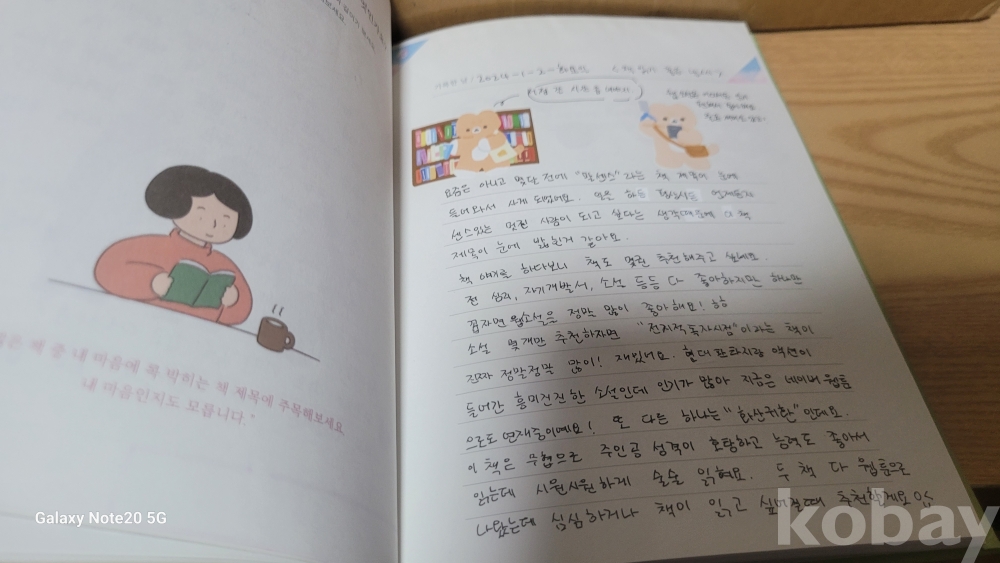 읽은 책 중 내 마음에 콕 박히는 책 제목에 주목해보세요.
내 마음인지도 모릅니다."
2024-1-2-화요일
요즘은 아니고 몇달 전에 "말센스"라는 책 제목이 눈에
들어와서 사게 되었어요. 일을 하든 일상이든 언제든지
센스있는 멋진 사람이 되고 싶다는 생각때문에 이 책
제목이 눈에 밟힌거 같아요.
책 얘기를 하다보니 책도 몇권 추천해주고 싶네요.
전 심리, 자기개발서, 소설 등등 다 좋아하지만 하나만
꼽자면 웹소설을 정말 많이 좋아해요! ㅎㅎ
소설 몇개만 추천하자면 "전지적독자시점"이라는 책이
진짜 정말정말 많이! 재밌어요. 현대판타지랑 액션이
들어간 흥미진진한 소설인데 인기가 많아 지금은 네이버 웹툰
으로도 연재중이예요! 또 다른 하나는 "화산귀환"인데요.
이 책은 무협으로 주인공 성격이 호탕하고 능력도 좋아서
읽는데 시원시원하게 술술 읽혀요. 두 책 다 웹툰으로
나왔는데 심심하거나 책이 읽고 싶어질때 추천할게요
Galaxy Note20 5G
kobay